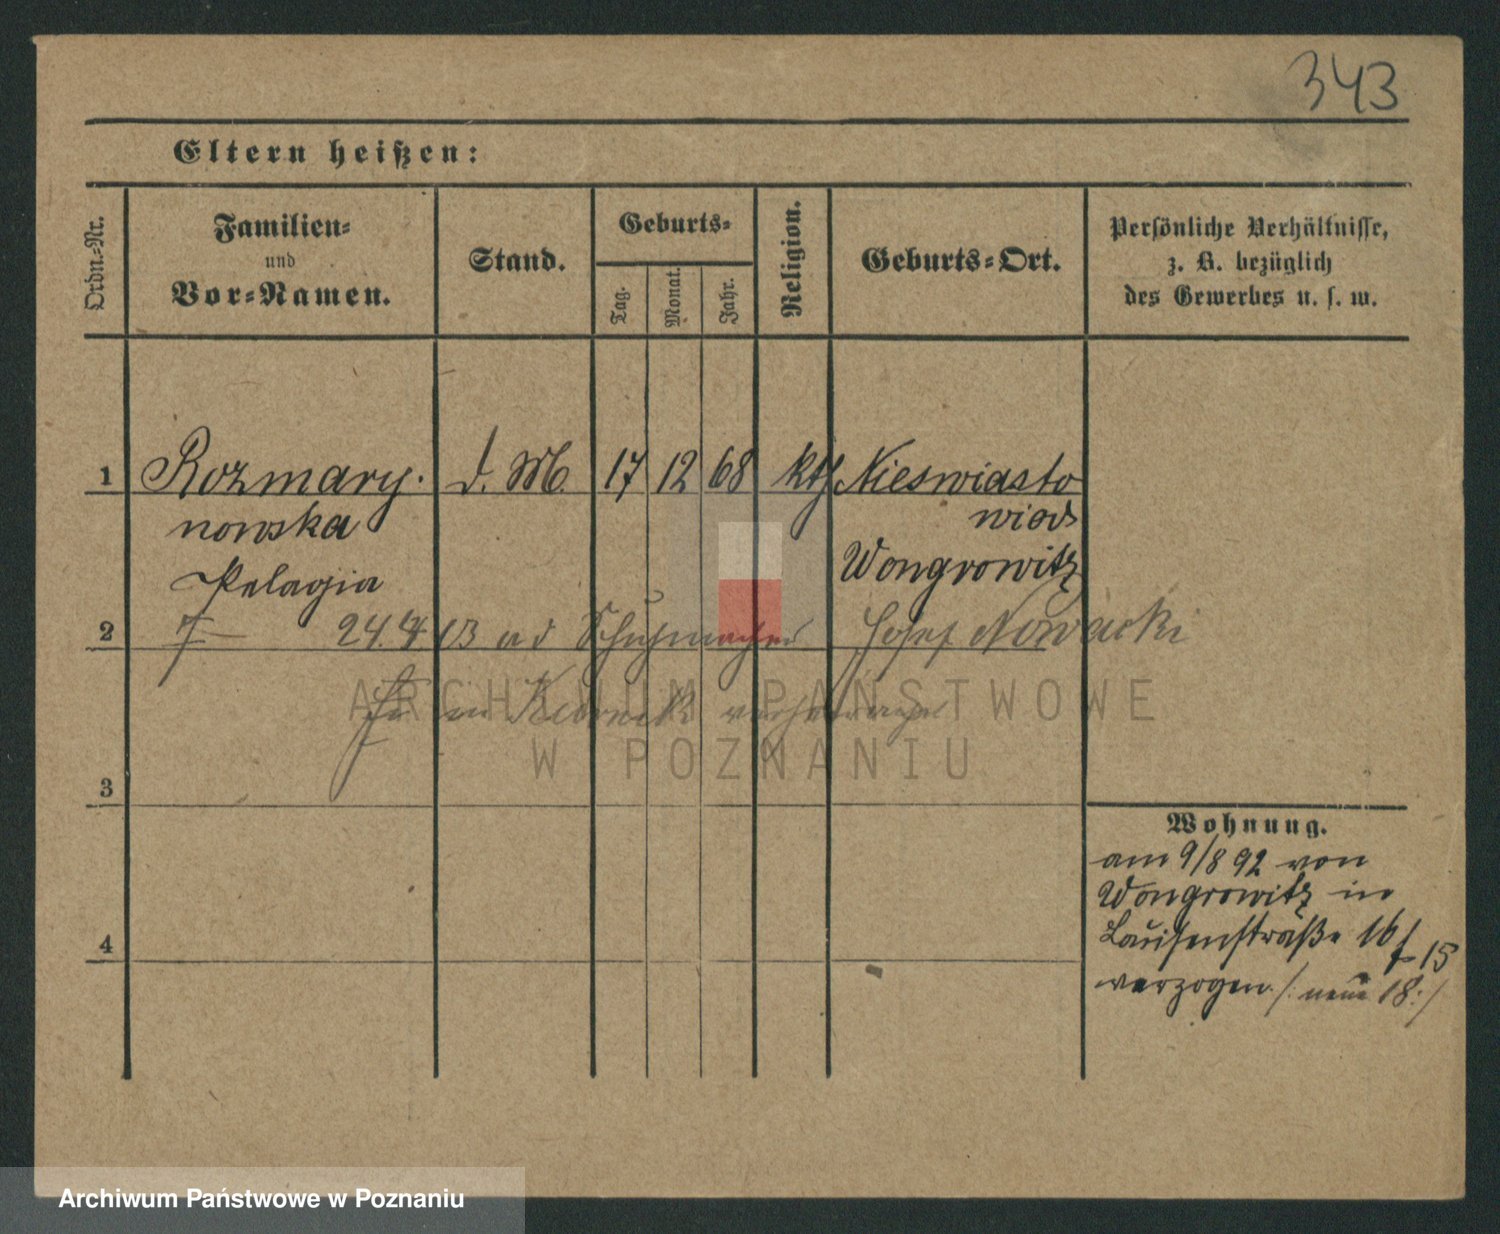 343
Eltern heißen:
Ordn.-Nr.
Familien-
und
Vor-Namen.
Stand.
Geburts-
Tag.
Monat.
Jahr.
Religion.
Geburts-Ort.
Persönliche Verhältnisse,
z. B. bezüglich
des Gewerbes u. s. w.
1 Rozmary- d. M. 17 12 68 kth Nieswiasto
nowska wice
Pelagia Wongrowitz
2 24. 4 13 Schuhmacher Josef Nowacki
in Kurnik
ARCHIWUM PAŃSTWOWE
W POZNANIU
3
Wohnung.
am 9/8 92 von
Wongrowitz in
Louisenstraße 16 15
verzogen /: neue 18 :/
4
Archiwum Państwowe w Poznaniu